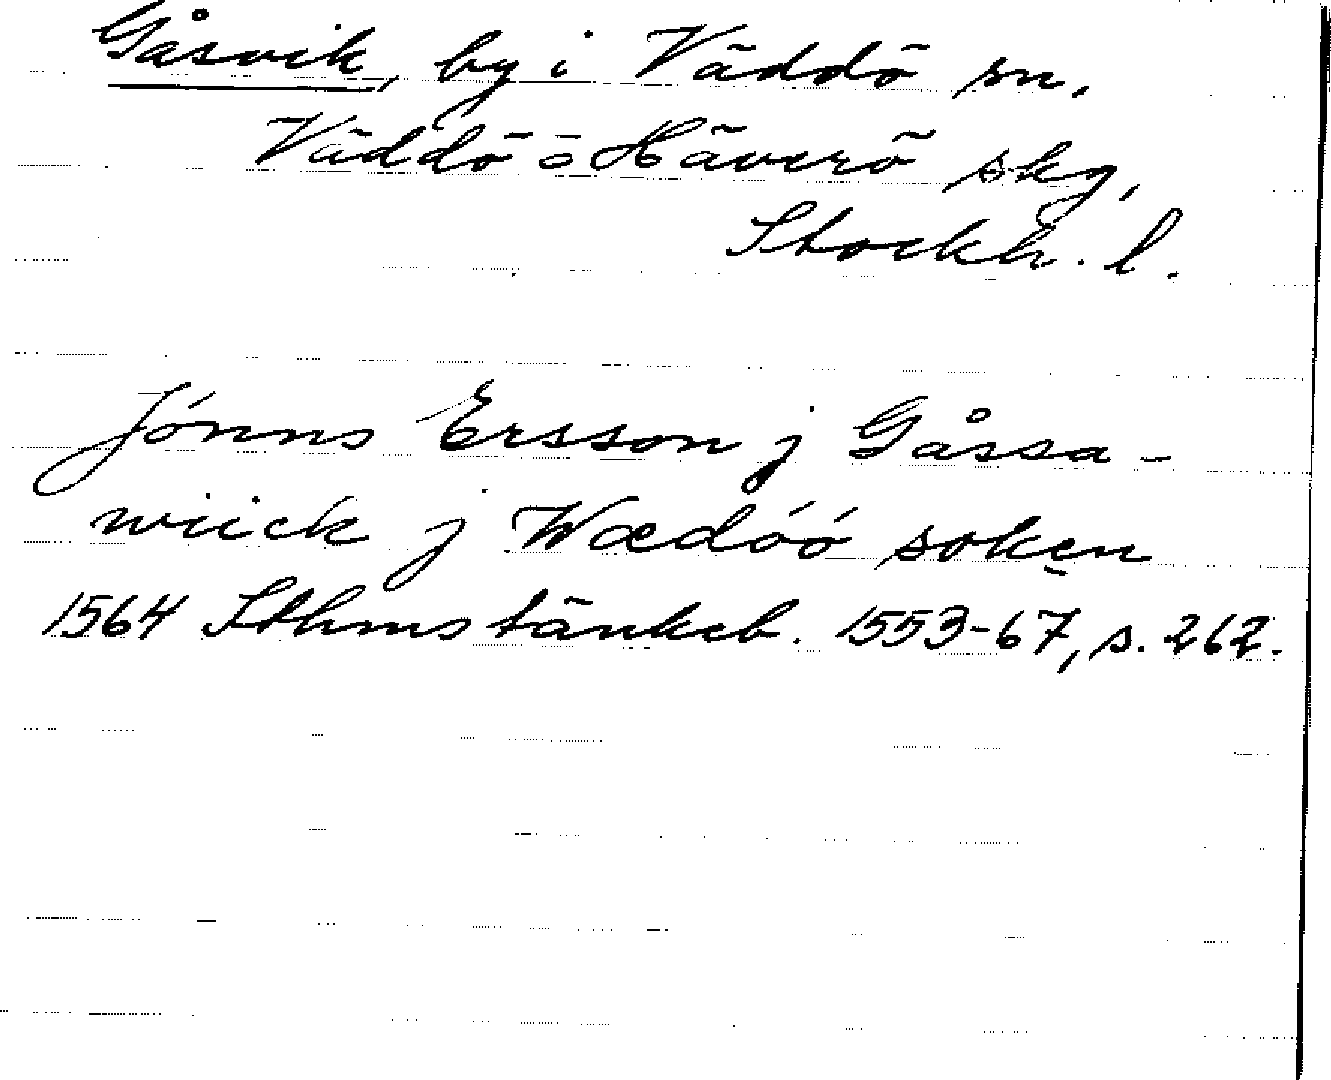 Gåsvik, by i Väddö sn,
Väddö o Häverö skg,
Stockh. l.
Jónns Ersson j Gåssa-
wiick j Wædóó soken
1564 Sthms tänkeb. 1553-67, s. 262.